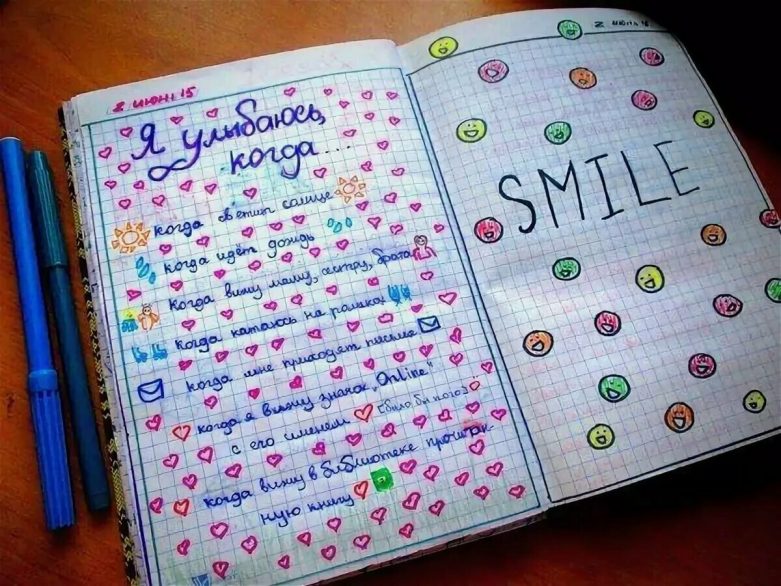 2 июня 15
Я улыбаюсь,
когда...
когда светит солнце
когда идёт дождь
когда вижу маму, сестру, брата
когда катаюсь на роликах
когда мне приходят письма
когда я вижу значок „Online"
с его именем (было бы кого)
когда вижу в библиотеке прочитан-
ную книгу
2 июня 15
SMILE